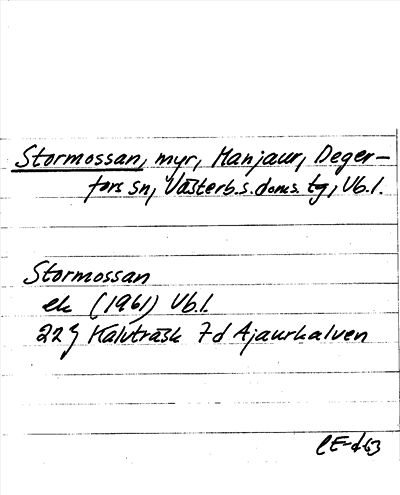 Stormossan, myr, Manjaur, Deger-
fors sn, Västerb.s.doms. tg, Vb.l.
Stormossan
ek (1961) Vb.l.
22J Kalvträsk 7d Ajaurkalven